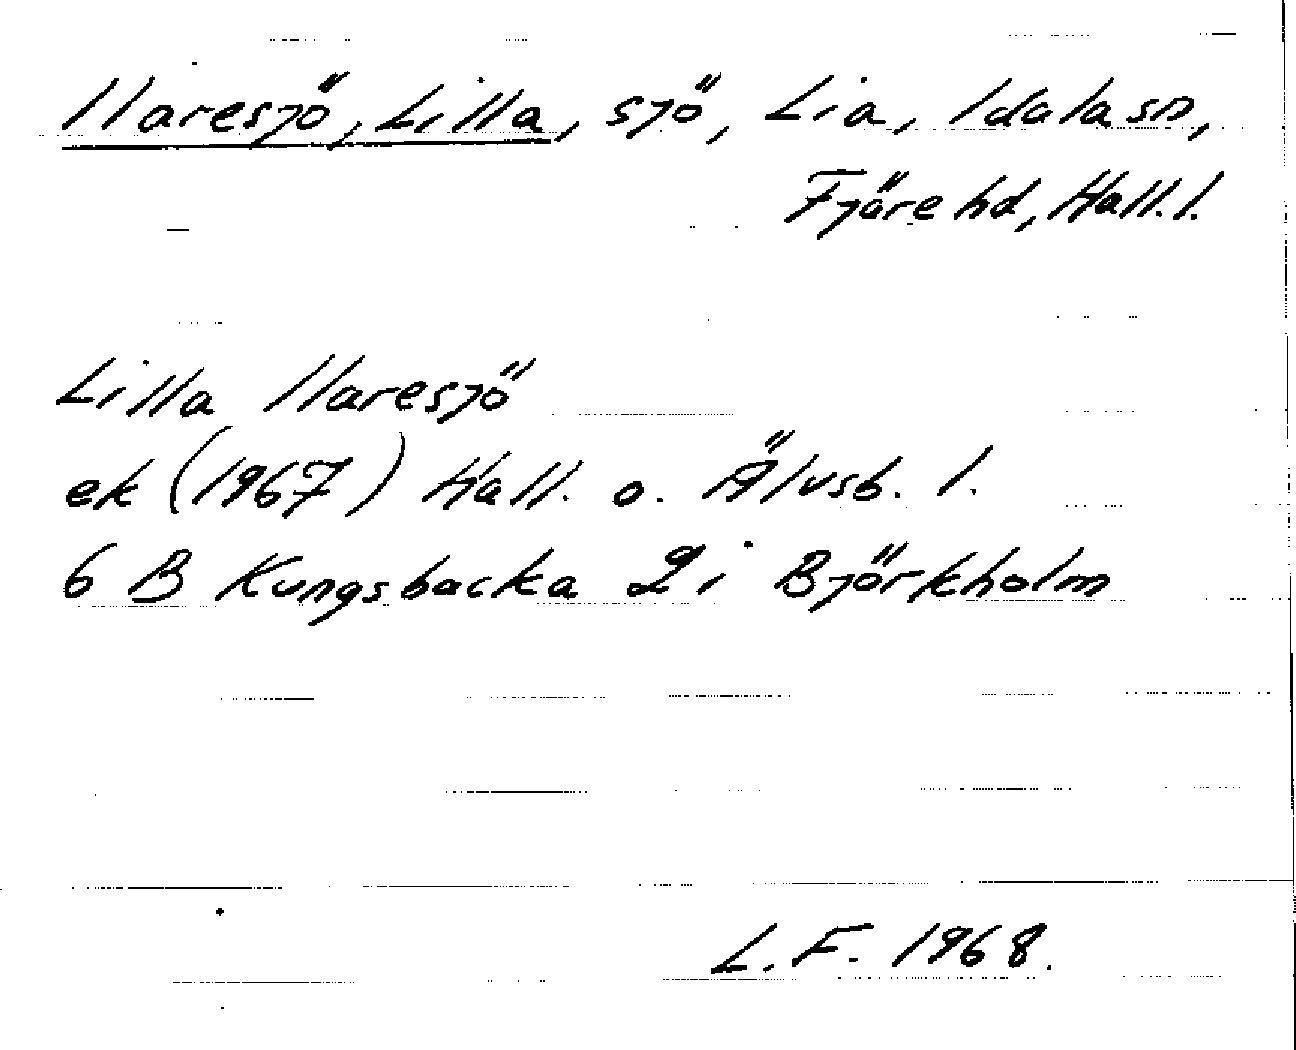 Ilaresjö, Lilla, sjö, Lia, Idala sn,
Fjäre hd, Hall. l.
Lilla Ilaresjö
ek (1967) Hall. o. Älvsb. l.
6 B Kungsbacka 2 i Björkholm
L. F. 1968.